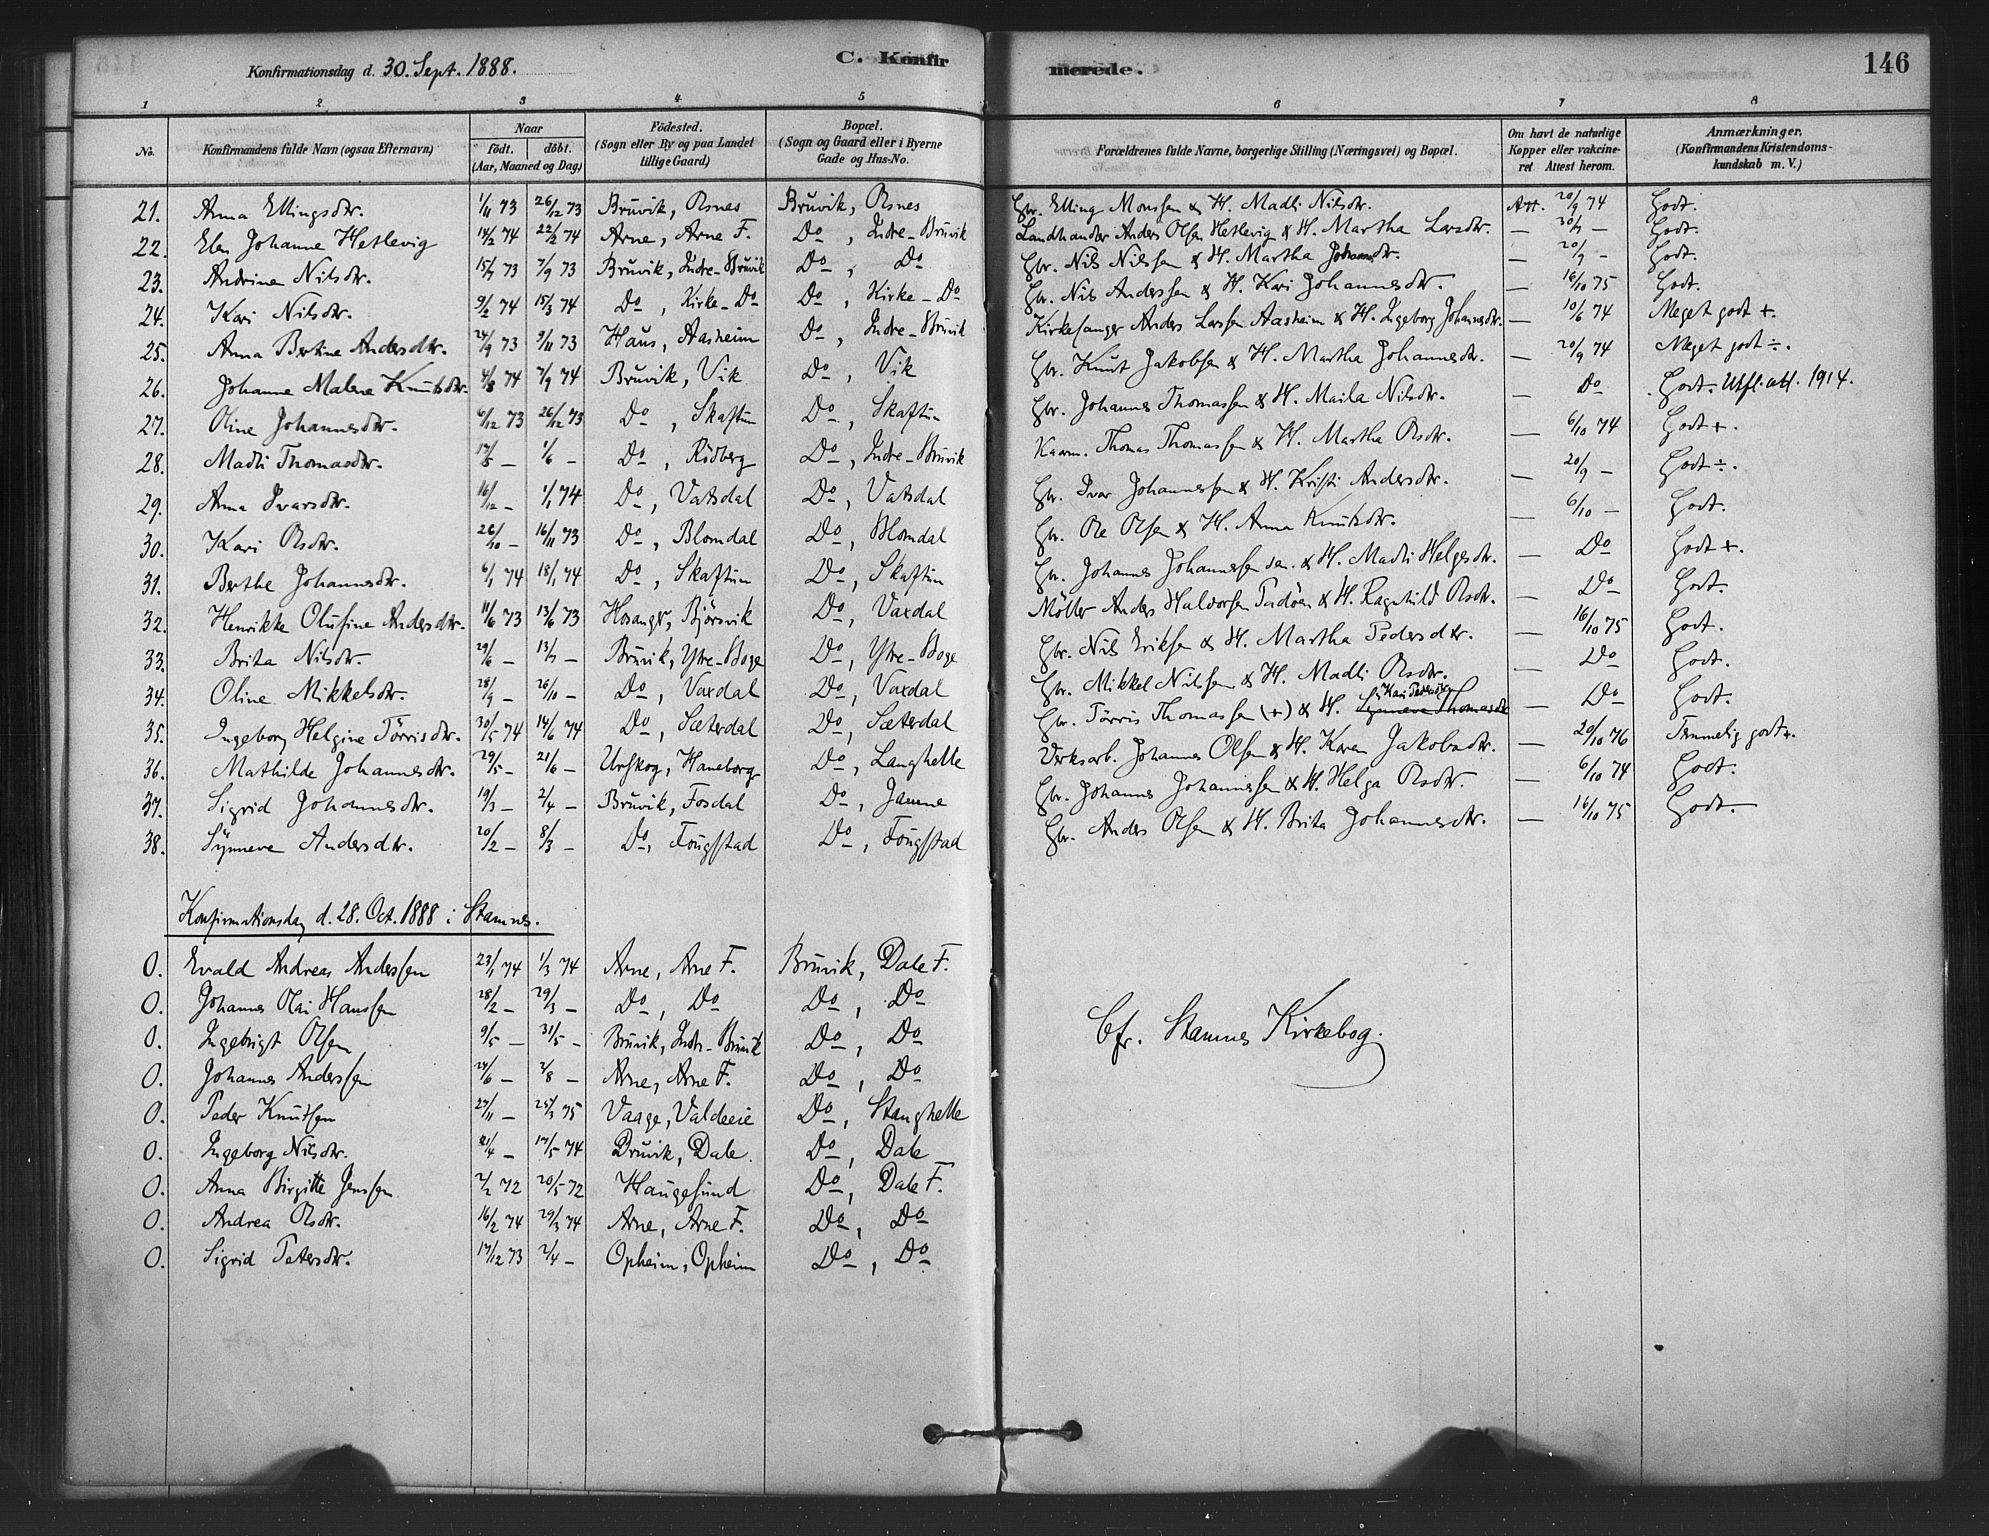 Konfirmationsdag d. 30. Sept. 1888. C. Konfirmerede. 146
1 2 3 4 5 6 7 8
No. Konfirmandens fulde Navn (ogsaa Efternavn) Naar født. døbt. (Aar, Maaned og Dag) Fødested. (Sogn eller By og paa Landet tillige Gaard) Bopæl. (Sogn og Gaard eller i Byerne Gade og Hus-No. Forældrenes fulde Navne, borgerlige Stilling (Næringsvei) og Bopæl. Om havt de naturlige Kopper eller vakcineret Attest herom. Anmærkninger. (Konfirmandens Kristendomskundskab m. V.)
21. Anna Ellingsdtr. 1/11 73 26/12 73 Bruvik, Rsnes Bruvik, Rsnes Gbr. Elling Monssen & H. Madli Nilsdtr. Att. 20/9 74 Godt.
22. Elen Johanne Hetlevig 14/2 74 22/2 74 Arne, Arne F. Do, Indre-Bruvik Landhandler Anders Olsen Hetlevig & H. Martha Larsdtr. — 30/9 — Godt.
23. Andrine Nilsdtr. 15/7 73 7/9 73 Bruvik, Indre-Bruvik Do, Do Gbr. Nils Nilssen & H. Martha Johannsdtr. — 20/9 - Godt.
24. Kari Nilsdtr. 9/2 74 15/3 74 Do, Kirke-Do Do, Kirke-Do Gbr. Nils Anderssen & H. Kari Johannesdtr. — 16/10 75 Godt.
25. Anna Bertine Andersdtr. 24/9 73 9/11 73 Haus, Aasheim Do, Indre-Bruvik Kirkesanger Anders Larssen Aasheim & H. Ingeborg Johannesdtr. — 10/6 74 Meget godt +.
26. Johanne Malene Knutsdtr. 4/8 74 7/9 74 Bruvik, Vik Do, Vik Gbr. Knut Jakobsen & H. Martha Johannesdtr. — 20/9 74 Meget godt ÷.
27. Oline Johannesdtr. 6/12 73 26/12 73 Do, Skaftun Do, Skaftun Gbr. Johannes Thomassen & H. Maila Nilsdtr. — Do Godt. Utfl. att. 1914.
28. Madli Thomasdtr. 17/5 — 1/6 — Do, Rødberg Do, Indre-Bruvik Kaarm. Thomas Thomassen & H. Martha Olsdtr. — 6/10 74 Godt +.
29. Anna Ivarsdtr. 16/12 — 1/1 74 Do, Vatsdal Do, Vatsdal Gbr. Ivar Johannessen & H. Kristi Andersdtr. — 20/9 — Godt ÷.
30. Kari Olsdtr. 26/10 — 16/11 73 Do, Blomdal Do, Blomdal Gbr. Ole Olsen & H. Anna Knutsdtr. — 6/10 — Godt.
31. Berthe Johannesdtr. 6/1 74 18/1 74 Do, Skaftun Do, Skaftun Gbr. Johannes Johannessen sen. & H. Madli Helgesdtr. — Do Godt +.
32. Henrikke Olufine Andersdtr. 11/6 73 13/6 73 Hosangr, Bjørsvik Do, Vaxdal Møller Anders Haldorsen Tadøen & H. Ragnhild Olsdtr. — Do Godt.
33. Brita Nilsdtr. 29/6 — 13/7 — Bruvik, Ytre-Boge Do, Ytre-Boge Gbr. Nils Eriksen & H. Martha Pedersdtr. — 16/10 75 Godt.
34. Oline Mikkelsdtr. 28/9 — 26/10 — Do, Vaxdal Do, Vaxdal Gbr. Mikkel Nilssen & H. Madli Olsdtr. — Do Godt.
35. Ingeborg Helgine Tørrisdtr. 30/5 74 14/6 74 Do, Sæterdal Do, Sæterdal Gbr. Tørris Thomassen (+) & H. Synneve Thomasdtr Kari Pedersdtr — Do Godt.
36. Mathilde Johannesdtr. 29/5 — 21/6 — Urskog, Haneborg Do, Langhelle Verksarb. Johannes Olsen & H. Karen Jakobsdtr. — 20/10 76 Temmelig godt +.
37. Sigrid Johannesdtr. 19/3 — 2/4 — Bruvik, Fosdal Do, Jamne Gbr. Johannes Johannessen & H. Helga Olsdtr. — 6/10 74 Godt.
38. Synneve Andersdtr. 20/2 — 8/3 — Do, Fougstad Do, Fougstad Gbr. Anders Olsen & H. Brita Johannesdtr. — 16/10 75 Godt.
Konfirmationsdag d. 28. Oct. 1888 i Stamnes.
0. Evald Andreas Anderssen 23/1 74 1/3 74 Arne, Arne F. Bruvik, Dale F.
0. Johannes Olai Hanssen 28/2 — 29/3 — Do, Do Do, Do
0. Ingebrigt Olsen 9/5 — 31/5 — Bruvik, Indre-Bruvik Do, Do
Cfr. Stamnes Kirkebog.
0. Johannes Anderssen 24/6 — 2/8 — Arne, Arne F. Do, Do
0. Peder Knutsen 27/11 — 25/3 75 Vaage, Valdeeie Do, Stanghelle
0. Ingeborg Nilsdtr. 21/4 — 17/5 74 Bruvik, Dale. Do, Dale
0. Anna Birgitte Jenssen 2/2 72 20/5 72 Haugesund Do, Dale F.
0. Andrea Olsdtr. 16/2 74 29/3 74 Arne, Arne F. Do, Do
0. Sigrid Petersdtr. 17/12 73 2/4 — Opheim, Opheim Do, Do